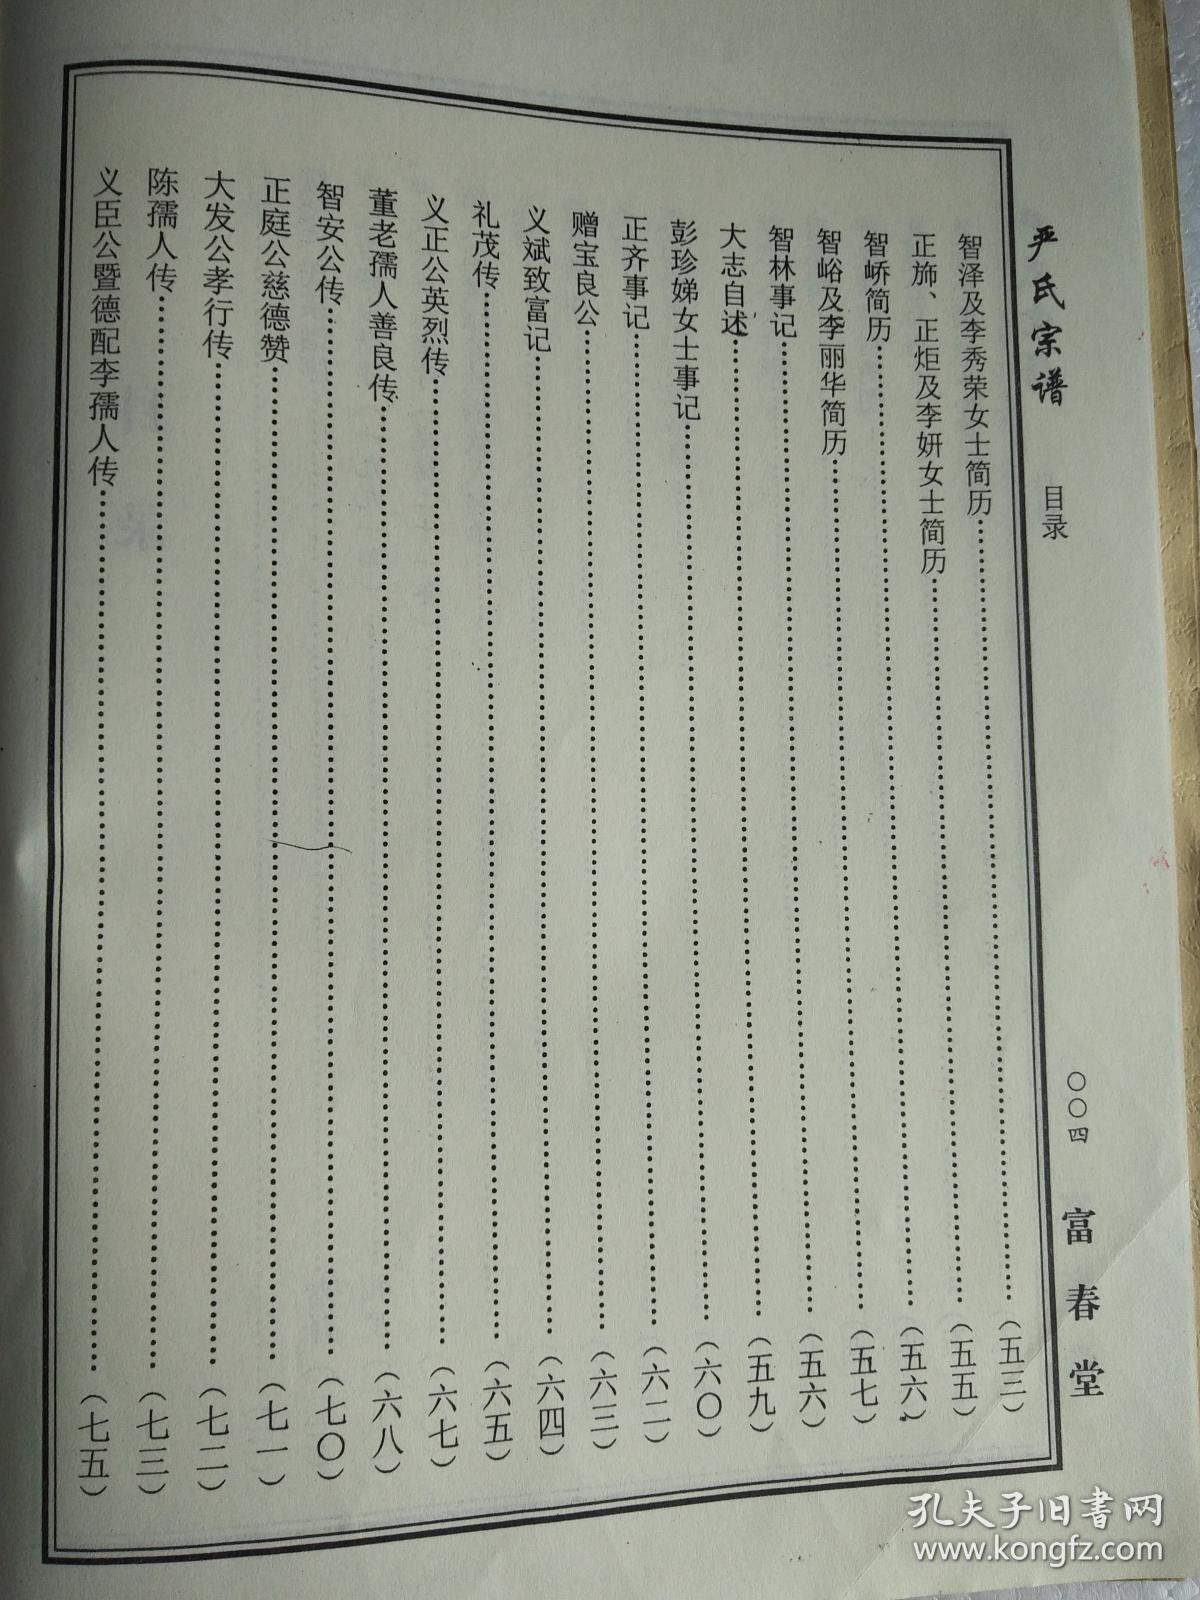 严氏宗谱 目录 〇〇四 富春堂
智泽及李秀荣女士简历……(五三)
正旆、正炬及李妍女士简历……(五五)
智峤简历……(五六)
智峪及李丽华简历……(五七)
智林事记……(五六)
大志自述……(五九)
彭珍娣女士事记……(六〇)
正齐事记……(六二)
赠宝良公……(六三)
义斌致富记……(六四)
礼茂传……(六五)
义正公英烈传……(六七)
董老孺人善良传……(六八)
智安公传……(七〇)
正庭公慈德赞……(七一)
大发公孝行传……(七二)
陈孺人传……(七三)
义臣公暨德配李孺人传……(七五)
孔夫子旧书网
www.kongfz.com